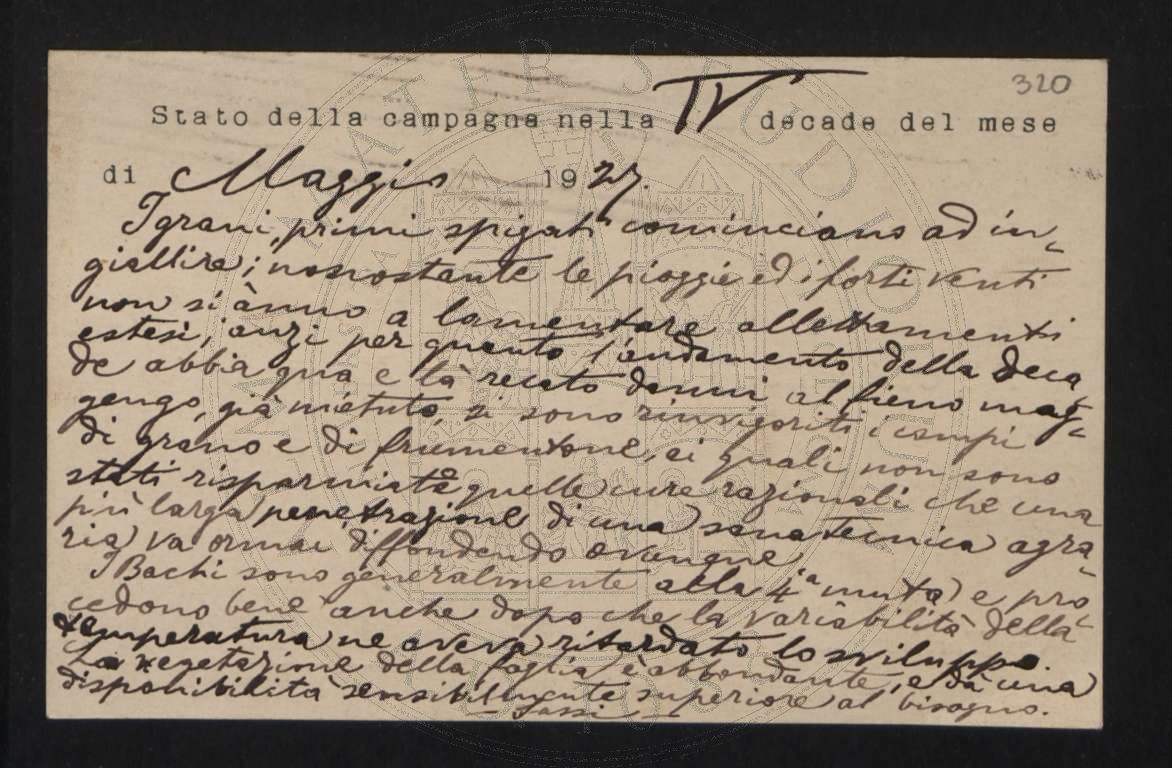 320
Stato della campagna nella IV decade del mese
di Maggio 1927.
I grani, primi spigati cominciano ad in-
giallire; nonostante le pioggie ed i forti venti
non si ànno a lamentare allettamenti
estesi; anzi per quanto l'andamento della deca
de abbia qua e là recato danni al fieno mag-
gengo, già mietuto, si sono rinvigoriti i campi
di grano e di frumentone, ai quali non sono
stati risparmiate quelle cure razionali che una
più larga penetrazione di una sana tecnica agra-
ria va ormai diffondendo ovunque
I Bachi sono generalmente alla 4ª muta e pro-
cedono bene anche dopo che la variabilità della
temperatura ne aveva ritardato lo sviluppo.
La vegetazione della foglia è abbondante, e dà una
disponibilità sensibilmente superiore al bisogno.
— Sassi —